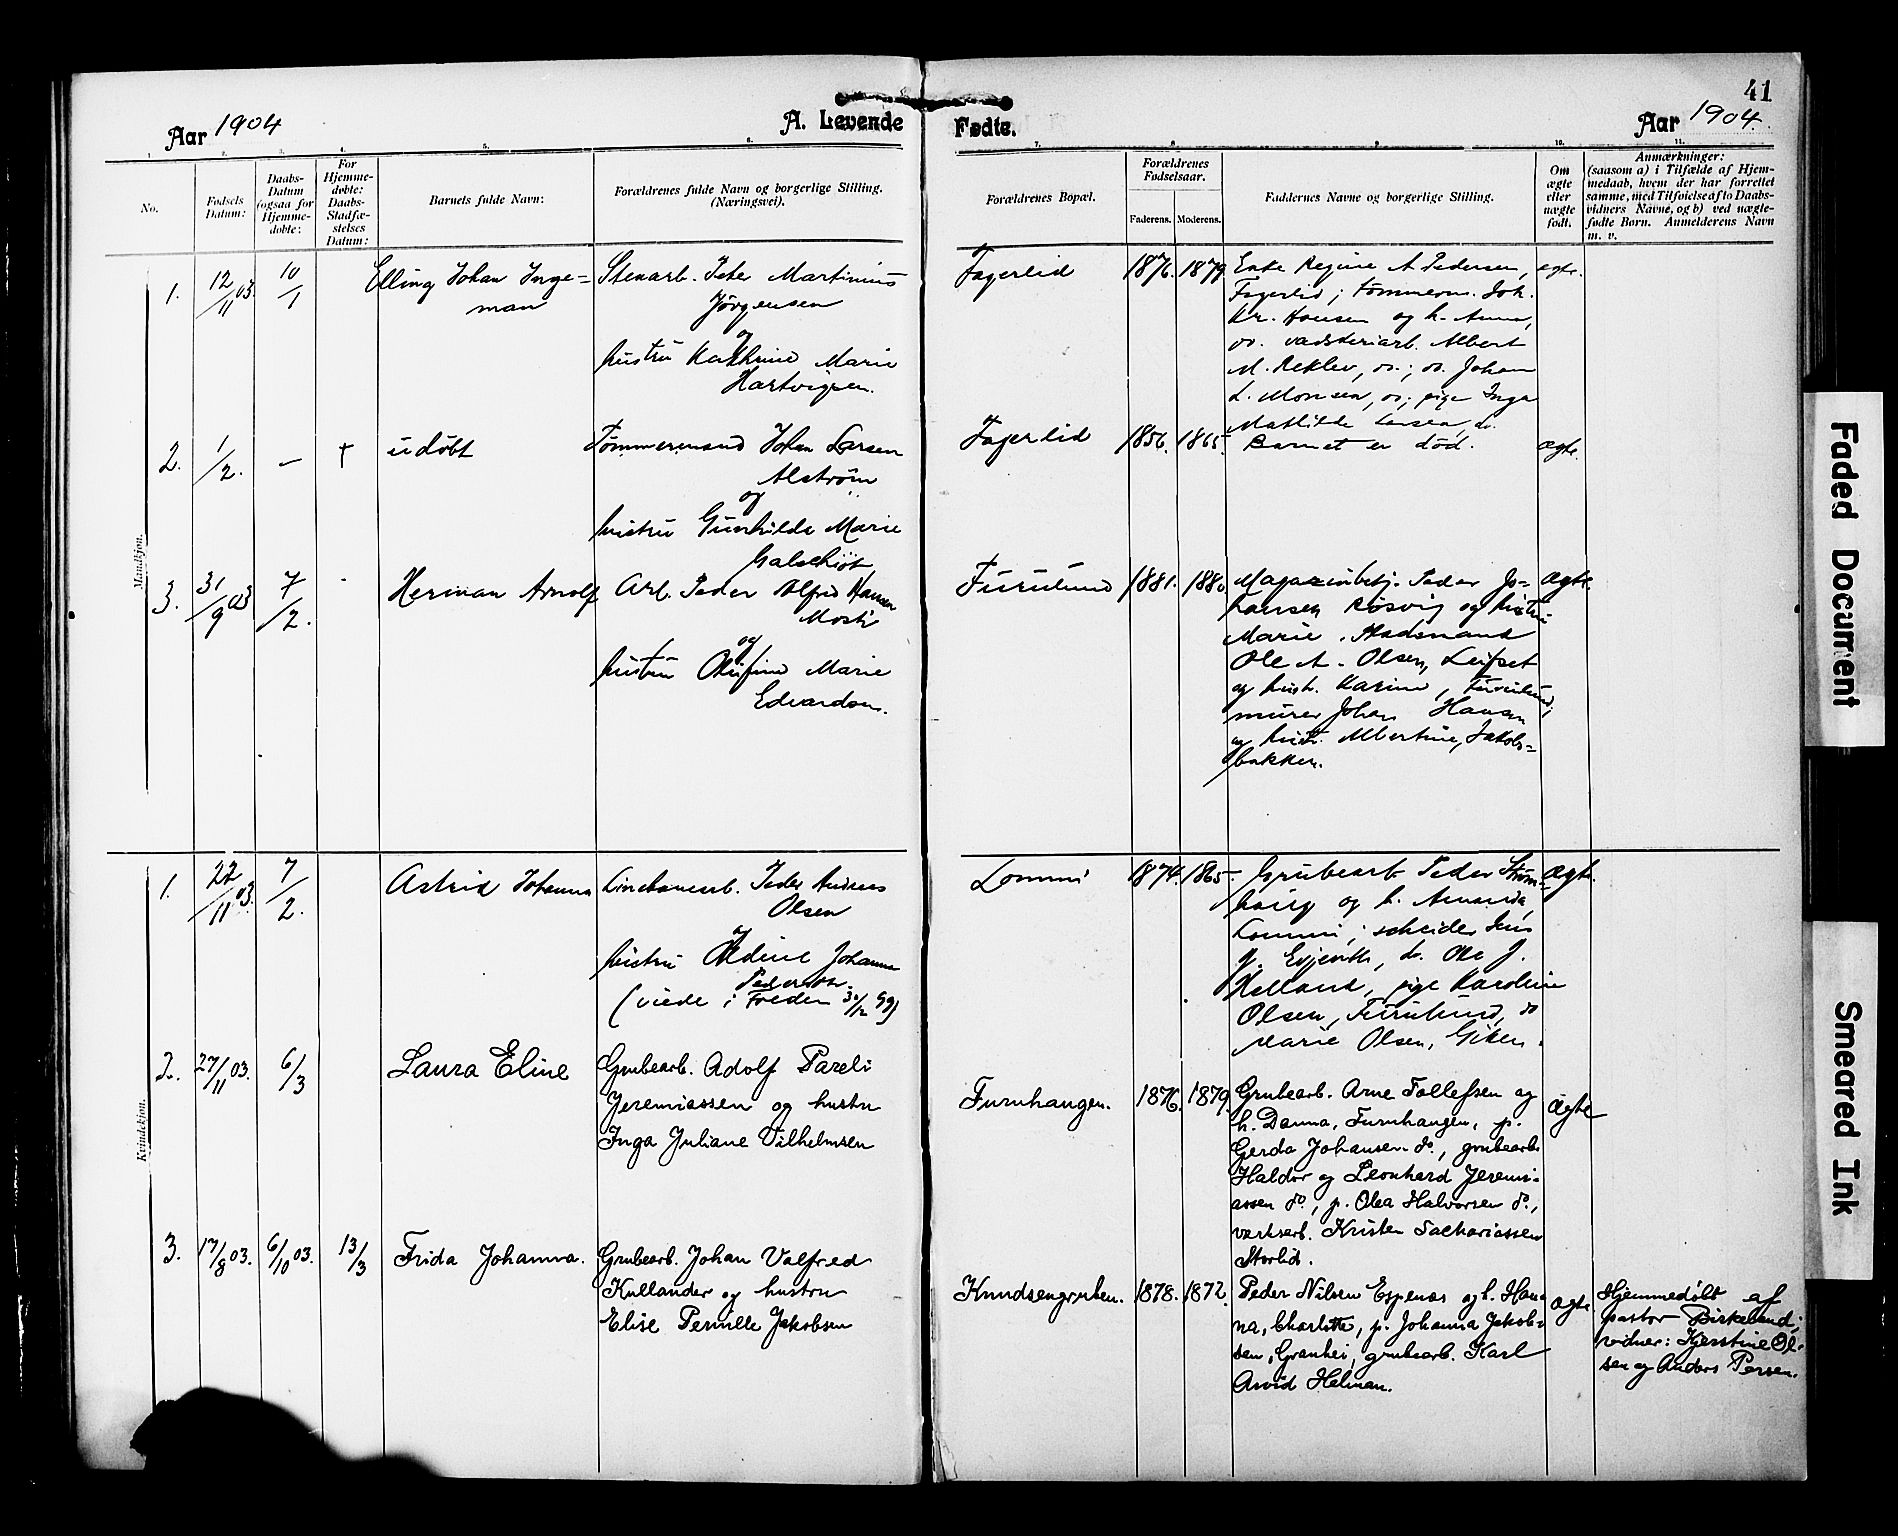 41
Aar 1904
A. Levende
Fødte.
Aar 1904.
1. 2. 3. 4. 5. 6.
7. 8. 9. 10. 11.
No.
Fødsels
Datum:
Daabs-
Datum
(ogsaa for
Hjemme-
døbte:
For
Hjemme-
døbte:
Daabs-
Stadfæ-
stelses
Datum:
Barnets fulde Navn:
Forældrenes fulde Navn og borgerlige Stilling.
(Næringsvei).
Forældrenes Bopæl.
Forældrenes
Fødselsaar.
Faderens. Moderens.
Faddernes Navne og borgerlige Stilling.
Om
ægte
eller
uægte
født.
Anmærkninger:
(saasom a) i Tilfælde af Hjem-
medaab, hvem der har forrettet
samme, med Tilføielse af to Daabs-
vidners Navne, og b) ved uægte-
fødte Børn. Anmelderens Navn
m. v.
Mandkjøn.
1. 12/11 03. 10/1
Elling Johan Inge=
man
Stenarb. Peter Martinius
Jørgensen
og
hustru Kathrine Marie
Hartvigsen.
Fagerlid 1876. 1879.
Enke Regine A Pedersen,
Fagerlid; tømmerm. Joh.
Kr. Hansen og h. Anna,
do. vadskeriarb. Albert
M. Reklev, do.; do. Johan
L. Monsen, do; pige Inga
Mathilde Larsen do.
ægte.
2. 1/2. – †
udøbt
Tømmermand Johan Larsen
Alstrøm
og
hustru Gunhilde Marie
Galschiøt
Fagerlid 1856. 1865.
Barnet er død.
ægte.
3. 31/9 03 7/2.
Herman Arnolf
Arb. Peder Alfred Hansen
Mosti
og
hustru Olufine Marie
Edvardsen.
Furulund 1881. 1880.
Magazinbetj. Peder Jo-
hansen Røsvig og hustru
Marie. Stadsmand
Ole A. Olsen, Leifset
og hustr. Karine, Furulund;
murer Johan Hansen
og hustr. Albertine, Jakobs=
bakken.
Ægte.
Kvindekjøn.
1. 22/11 03. 7/2.
Astrid Johanna
Linebanearb. Peder Andreas
Olsen
og
hustru Oldine Johanna
Pedersen.
(viede i Foeden 30/12 99)
Lommi 1874. 1865.
Grubearb Peder Strøm-
haug og h. Amanda,
Lommi; scheider Jens
J. Evjenth, do. Ole J.
Kelland, pige Karoline
Olsen, Furulund, do
Marie Olsen, Giken.
Ægte.
2. 27/11 03. 6/3
Laura Eline
Grubearb. Adolf Pareli
Jeremiassen og hustru
Inga Juliane Vilhelmsen
Furuhaugen. 1876. 1879.
Grubearb. Arne Tollefsen og
h. Danna, Furuhaugen, p.
Gerda Johansen do., grubearb.
Haldor og Leonhard Jeremi-
assen do., p. Olea Halvorsen do.,
verksarb. Kristen Sachariassen
Storlid.
Ægte
3. 17/8 03. 6/10 03. 13/3
Frida Johanna.
Grubearb. Johan Valfred
Kullander og hustru
Elise Pernille Jakobsen
Knudsengruben. 1878. 1872.
Peder Nilsen Espenæs og h. Han-
na, Charlotte, p. Johanna Jakob-
sen, Granhei, grubearb. Karl
Arvid Helman.
ægte
Hjemmedøbt af
pastor Birkeland;
vidner: Kjerstine Ol-
sen og Anders Persen.
Faded Document
Smeared Ink